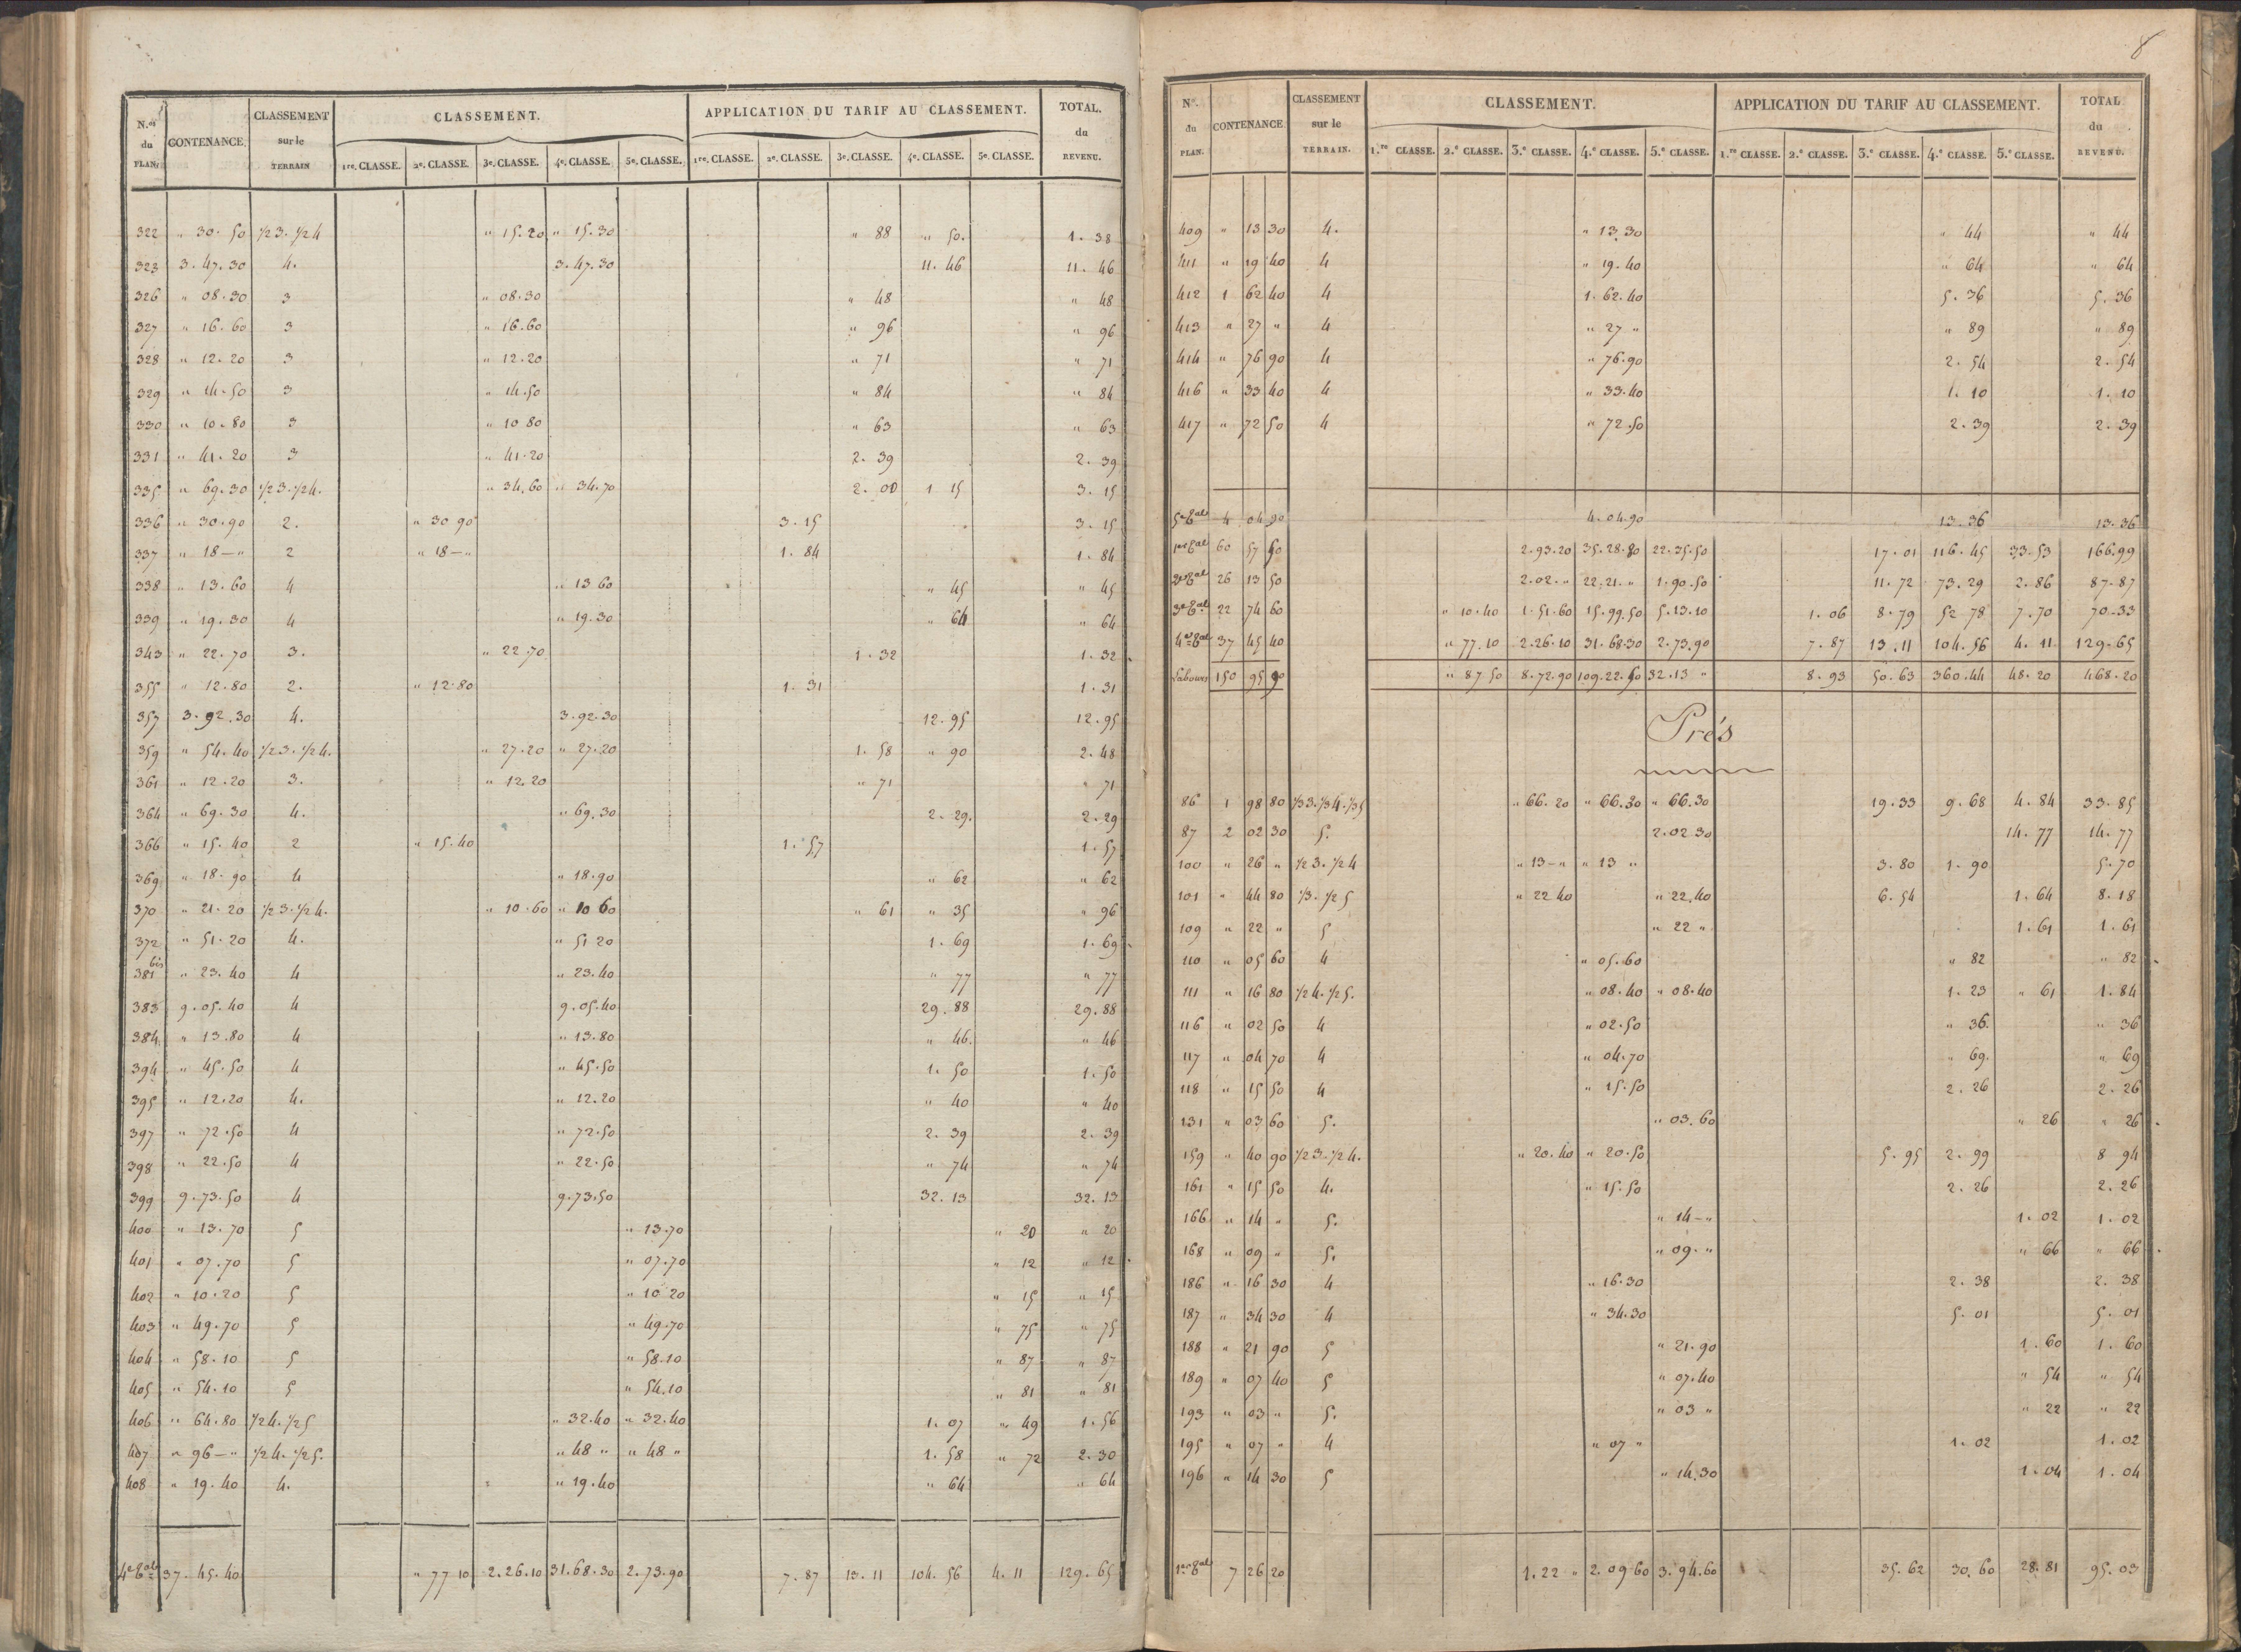 N.os du PLAN. CONTENANCE. CLASSEMENT sur le TERRAIN CLASSEMENT. APPLICATION DU TARIF AU CLASSEMENT. TOTAL. du REVENU.
1re. CLASSE. 2e. CLASSE. 3e. CLASSE. 4e. CLASSE. 5e. CLASSE. 1re. CLASSE. 2e. CLASSE. 3e. CLASSE. 4e. CLASSE. 5e. CLASSE.
322 " 30. 50 1/2 3. 1/2 4 " 15. 20 " 15. 30 " 88 " 50. 1. 38
323 3. 47. 30 4. 3. 47. 30 11. 46 11. 46
326 " 08. 30 3 " 08. 30 " 48 " 48
327 " 16. 60 3 " 16. 60 " 96 " 96
328 " 12. 20 3 " 12. 20 " 71 " 71
329 " 14. 50 3 " 14. 50 " 84 " 84
330 " 10. 80 3 " 10 80 " 63 " 63
331 " 41. 20 3 " 41. 20 2. 39 2. 39
335 " 69. 30 1/2 3. 1/2 4. " 34. 60 " 34. 70 2. 00 1 15 3. 15
336 " 30. 90 2. " 30 90 3. 15 3. 15
337 " 18 — " 2 " 18 — " 1. 84 1. 84
338 " 13. 60 4 " 13 60 " 45 " 45
339 " 19. 30 4 " 19. 30 " 64 " 64
343 " 22. 70 3. " 22. 70 1. 32 1. 32
355 " 12. 80 2. " 12. 80 1. 31 1. 31
357 3. 92. 30 4. 3. 92. 30 12. 95 12. 95
359 " 54. 40 1/2 3. 1/2 4. " 27. 20 " 27. 20 1. 58 " 90 2. 48
361 " 12. 20 3. " 12. 20 " 71 " 71
364 " 69. 30 4. " 69. 30 2. 29. 2. 29
366 " 15. 40 2 " 15. 40 1. 57 1. 57
369 " 18. 90 4 " 18. 90 " 62 " 62
370 " 21. 20 1/2 3. 1/2 4. " 10. 60 " 10 60 " 61 " 35 " 96
372 " 51. 20 4. " 51 20 1. 69 1. 69
381 bis " 23. 40 4 " 23. 40 " 77 " 77
383 9. 05. 40 4 9. 05. 40 29. 88 29. 88
384. " 13. 80 4 " 13. 80 " 46. " 46
394 " 45. 50 4 " 45. 50 1. 50 1. 50
395 " 12. 20 4. " 12. 20 " 40 " 40
397 " 72. 50 4 " 72. 50 2. 39 2. 39
398 " 22. 50 4 " 22. 50 " 74 " 74
399 9. 73. 50 4 9. 73. 50 32. 13 32. 13
400 " 13. 70 5 " 13. 70 " 20 " 20
401 " 07. 70 5 " 07. 70 " 12 " 12
402 " 10. 20 5 " 10 20 " 15 " 15
403 " 49. 70 5 " 49. 70 " 75 " 75
404 " 58. 10 5 " 58. 10 " 87 " 87
405 " 54. 10 5 " 54. 10 " 81 " 81
406 " 64. 80 1/2 4. 1/2 5 " 32. 40 " 32. 40 1. 07 " 49 1. 56
407 " 96 — " 1/2 4. 1/2 5. " 48 " " 48 " 1. 58 " 72 2. 30
408 " 19. 40 4. " 19. 40 " 64 " 64
4e Tal 37. 45. 40 " 77 10 2. 26. 10 31. 68. 30 2. 73. 90 7. 87 13. 11 104. 56 4. 11 129. 65
8
N.o du PLAN. CONTENANCE. CLASSEMENT sur le TERRAIN. CLASSEMENT. APPLICATION DU TARIF AU CLASSEMENT. TOTAL du REVENU.
1.re CLASSE. 2.e CLASSE. 3.e CLASSE. 4.e CLASSE. 5.e CLASSE. 1.re CLASSE. 2.e CLASSE. 3.e CLASSE. 4.e CLASSE. 5.e CLASSE.
409 " 13 30 4. " 13. 30 " 44 " 44
411 " 19 40 4 " 19. 40 " 64 " 64
412 1 62 40 4 1. 62. 40 5. 36 5. 36
413 " 27 " 4 " 27 " " 89 " 89
414 " 76 90 4 " 76. 90 2. 54 2. 54
416 " 33 40 4 " 33. 40 1. 10 1. 10
417 " 72 50 4 " 72. 50 2. 39 2. 39
5e Tal 4 04 90 4. 04. 90 13. 36 13. 36
1er Tal 60 57 50 2. 93. 20 35. 28. 80 22. 35. 50 17. 01 116. 45 33. 53 166. 99
2e Tal 26 13 50 2. 02. " 22. 21. " 1. 90. 50 11. 72 73. 29 2. 86 87. 87
3e Tal 22 74 60 " 10. 40 1. 51. 60 15. 99. 50 5. 13. 10 1. 06 8. 79 52 78 7. 70 70. 33
4e Tal 37 45 40 " 77. 10 2. 26. 10 31. 68. 30 2. 73. 90 7. 87 13. 11 104. 56 4. 11 129. 65
Labours 150 95 90 " 87 50 8. 72. 90 109. 22. 50 32. 13 " 8. 93 50. 63 360. 44 48. 20 468. 20
Prés
86 1 98 80 1/3 3. 1/3 4. 1/3 5 " 66. 20 " 66. 30 " 66. 30 19. 33 9. 68 4. 84 33. 85
87 2 02 30 5. 2. 02 30 14. 77 14. 77
100 " 26 " 1/2 3. 1/2 4 " 13 — " " 13 " 3. 80 1. 90 5. 70
101 " 44 80 1/3. 1/2 5 " 22 40 " 22. 40 6. 54 1. 64 8. 18
109 " 22 " 5 " 22 " 1. 61 1. 61
110 " 05 60 4 " 05. 60 " 82 " 82
111 " 16 80 1/2 4. 1/2 5. " 08. 40 " 08. 40 1. 23 " 61 1. 84
116 " 02 50 4 " 02. 50 " 36. " 36
117 " 04 70 4 " 04. 70 " 69. " 69
118 " 15 50 4 " 15. 50 2. 26 2. 26
131 " 03 60 5. " 03. 60 " 26 " 26
159 " 40 90 1/2 3. 1/2 4. " 20. 40 " 20. 50 5. 95 2. 99 8 94
161 " 15 50 4. " 15. 50 2. 26 2. 26
166 " 14 " 5. " 14 — " 1. 02 1. 02
168 " 09 " 5. " 09. " " 66 " 66
186 " 16 30 4 " 16. 30 2. 38 2. 38
187 " 34 30 4 " 34. 30 5. 01 5. 01
188 " 21 90 5 " 21. 90 1. 60 1. 60
189 " 07 40 5 " 07. 40 " 54 " 54
193 " 03 " 5. " 03 " " 22 " 22
195 " 07 " 4 " 07 " 1. 02 1. 02
196 " 14 30 5 " 14. 30 1. 04 1. 04
1er Tal 7 26 20 1. 22 " 2. 09. 60 3. 94. 60 35. 62 30. 60 28. 81 95. 03